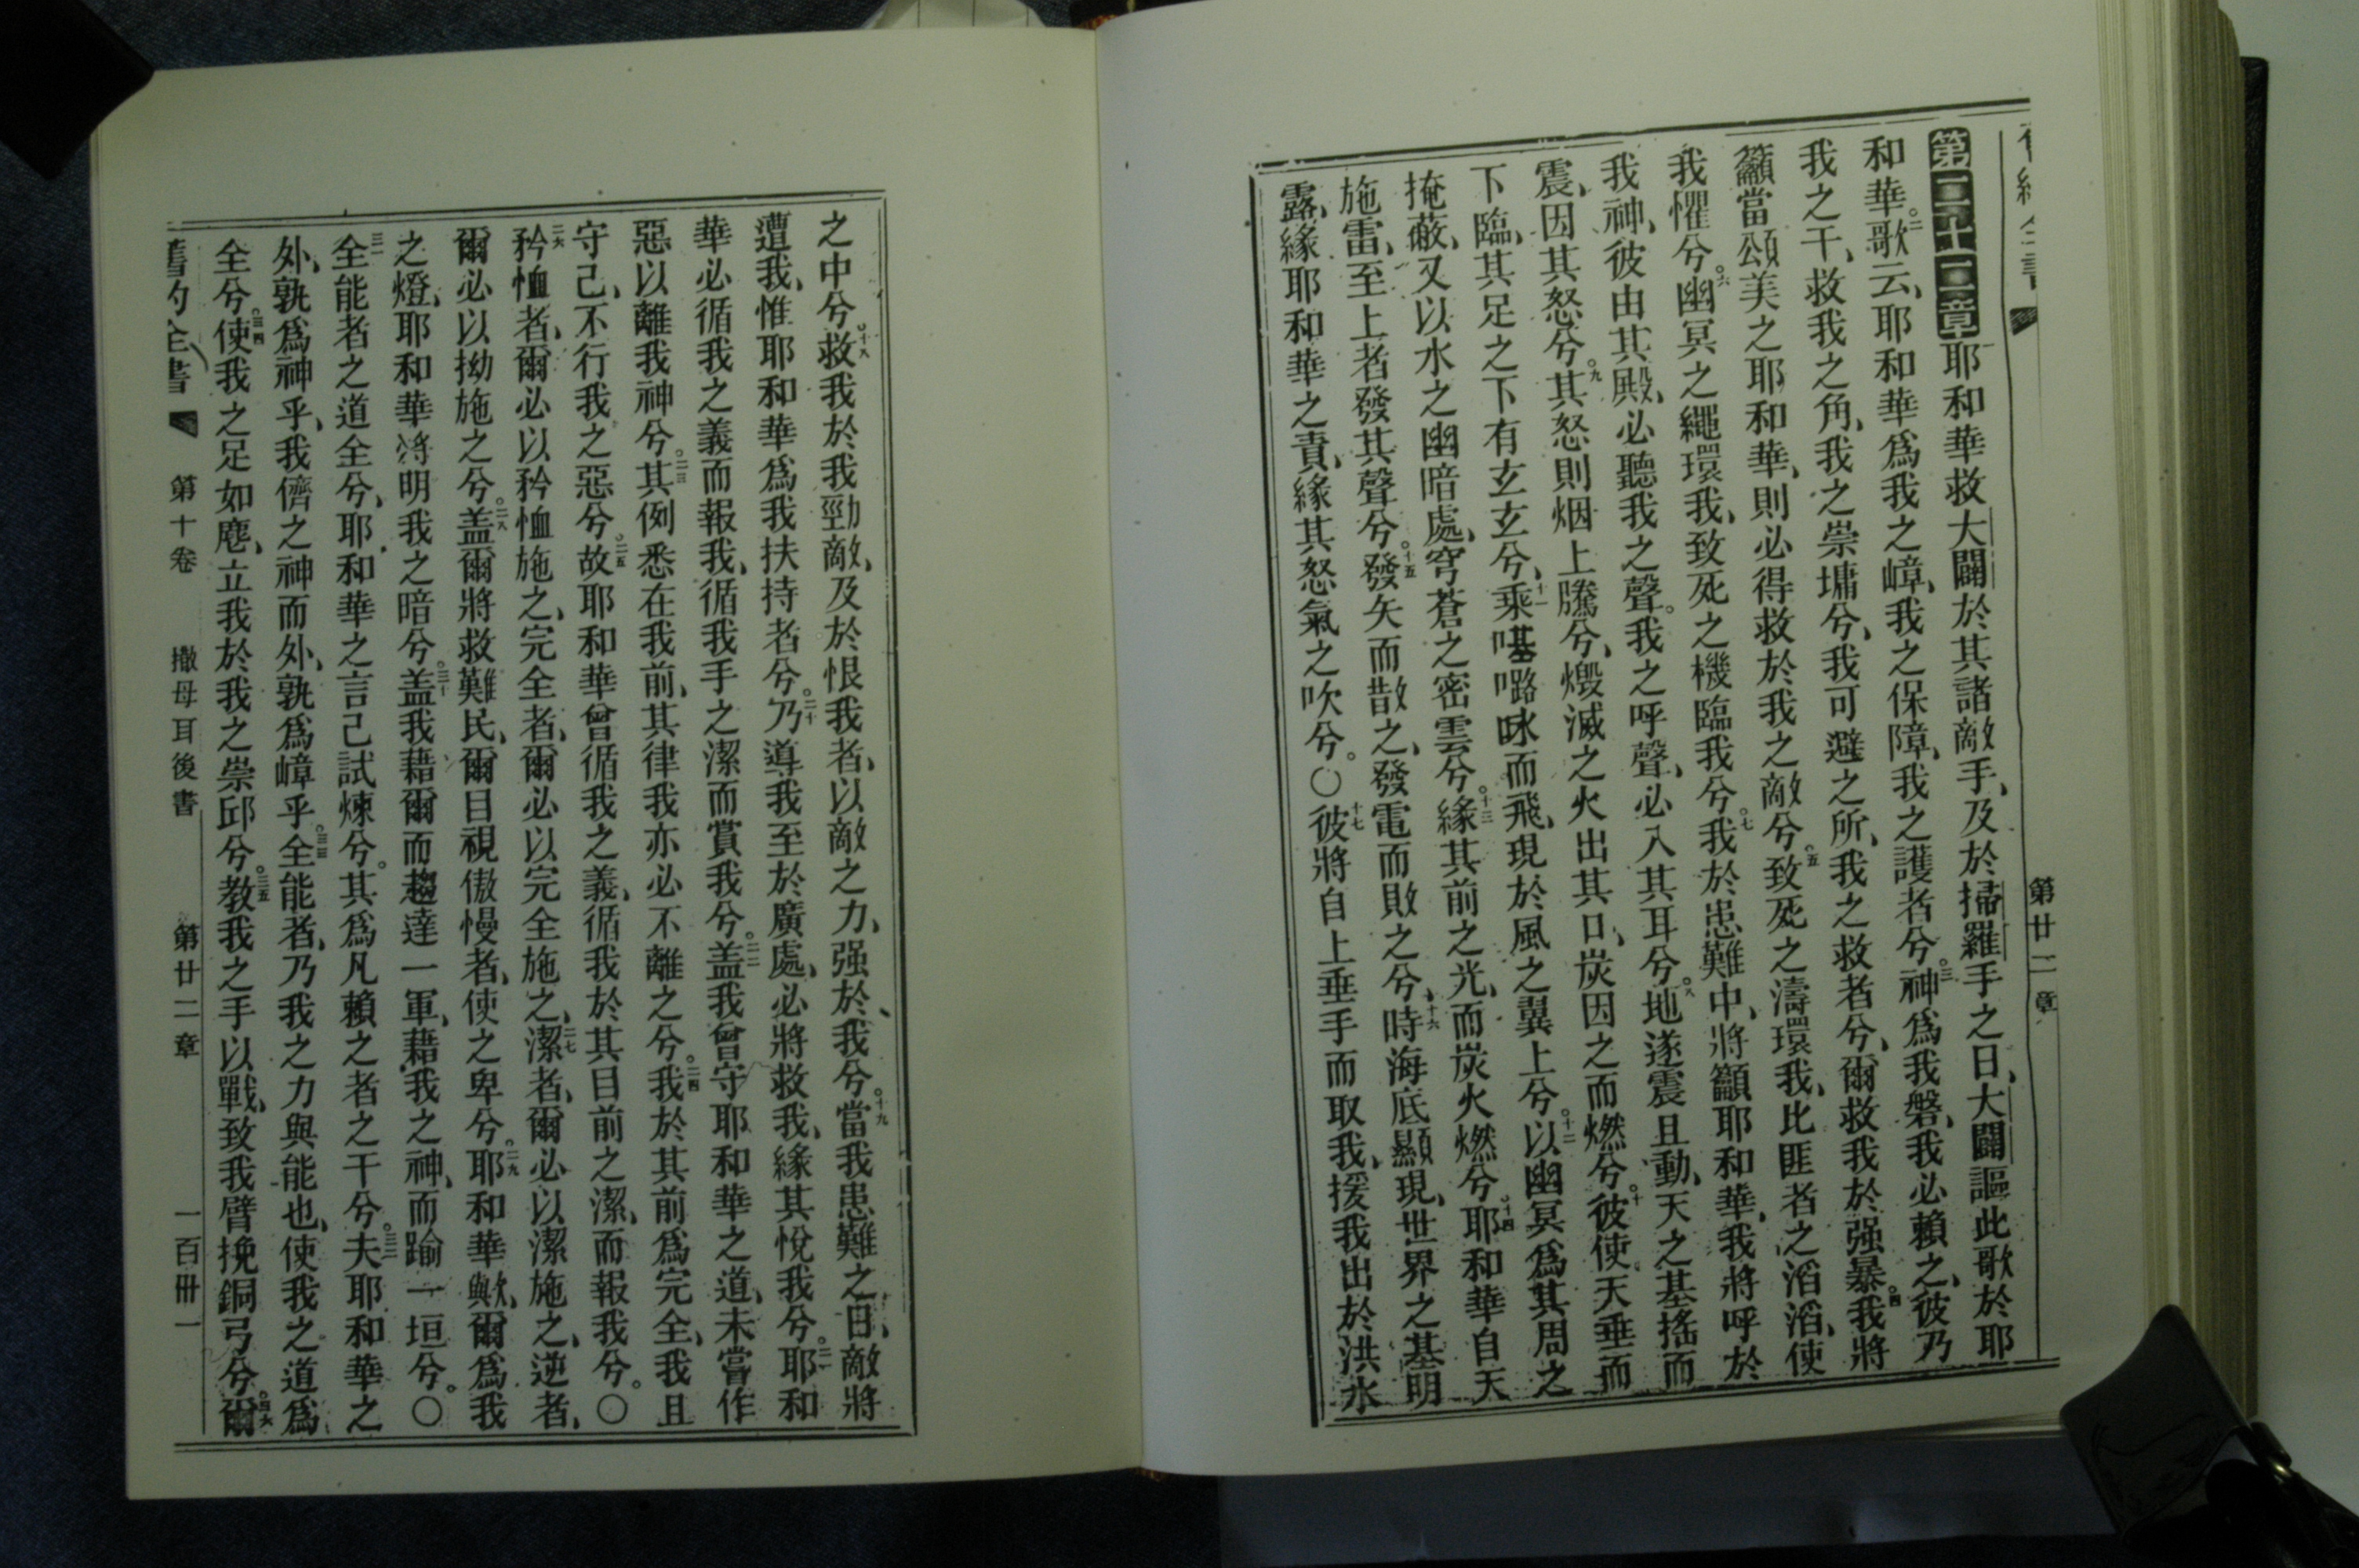 第廿二章
第二十二章耶和華救大闢於其諸敵手、及於掃羅手之日、大闢謳此歌於耶
和華。二歌云、耶和華爲我之嶂、我之保障、我之護者兮。三神爲我磐、我必賴之、彼乃
我之干、救我之角、我之崇墉兮、我可避之所、我之救者兮、爾救我於强暴。四我將
籲當頌美之耶和華、則必得救於我之敵兮。五致死之濤環我、比匪者之滔滔、使
我懼兮。六幽冥之繩環我、致死之機臨我兮。七我於患難中、將籲耶和華、我將呼於
我神、彼由其殿、必聽我之聲。我之呼聲、必入其耳兮。八地遂震且動、天之基搖而
震、因其怒兮。九其怒則烟上騰兮、燬滅之火出其口、炭因之而燃兮。十彼使天垂而
下臨、其足之下有玄玄兮、十一乘𠼻𡀔㕲而飛、現於風之翼上兮。十二以幽冥爲其周之
掩蔽、又以水之幽暗處、穹蒼之密雲兮。十三緣其前之光、而炭火燃兮、十四耶和華自天
施雷、至上者發其聲兮。十五發矢而散之、發電而敗之兮、十六時海底顯現、世界之基明
露、緣耶和華之責、緣其怒氣之吹兮。〇十七彼將自上垂手而取我、援我出於洪水
之中兮、十八救我於我勁敵、及於恨我者、以敵之力、强於我兮。十九當我患難之日、敵將
遭我、惟耶和華爲我扶持者兮。二十乃導我至於廣處、必將救我、緣其悅我兮。二一耶和
華必循我之義而報我、循我手之潔而賞我兮。二二盖我曾守耶和華之道、未嘗作
惡以離我神兮。二三其例悉在我前、其律我亦必不離之兮。二四我於其前爲完全、我且
守己、不行我之惡兮。二五故耶和華曾循我之義、循我於其目前之潔、而報我兮。〇
二六矜恤者、爾必以矜恤施之、完全者、爾必以完全施之、二七潔者、爾必以潔施之、逆者、
爾必以拗施之兮。二八盖爾將救難民、爾目視傲慢者、使之卑兮。二九耶和華歟、爾爲我
之燈、耶和華將明我之暗兮。三十盖我藉爾而趨達一軍、藉我之神、而踰一垣兮。〇
三一全能者之道全兮、耶和華之言己試煉兮。其爲凡賴之者之干兮。三二夫耶和華之
外、孰爲神乎、我儕之神而外、孰爲嶂乎。三三全能者、乃我之力與能也、使我之道爲
全兮。三四使我之足如麀、立我於我之崇邱兮。三五教我之手以戰、致我臂挽銅弓兮。三六爾
舊約全書 第十卷 撒母耳後書 第廿二章 一百卌一